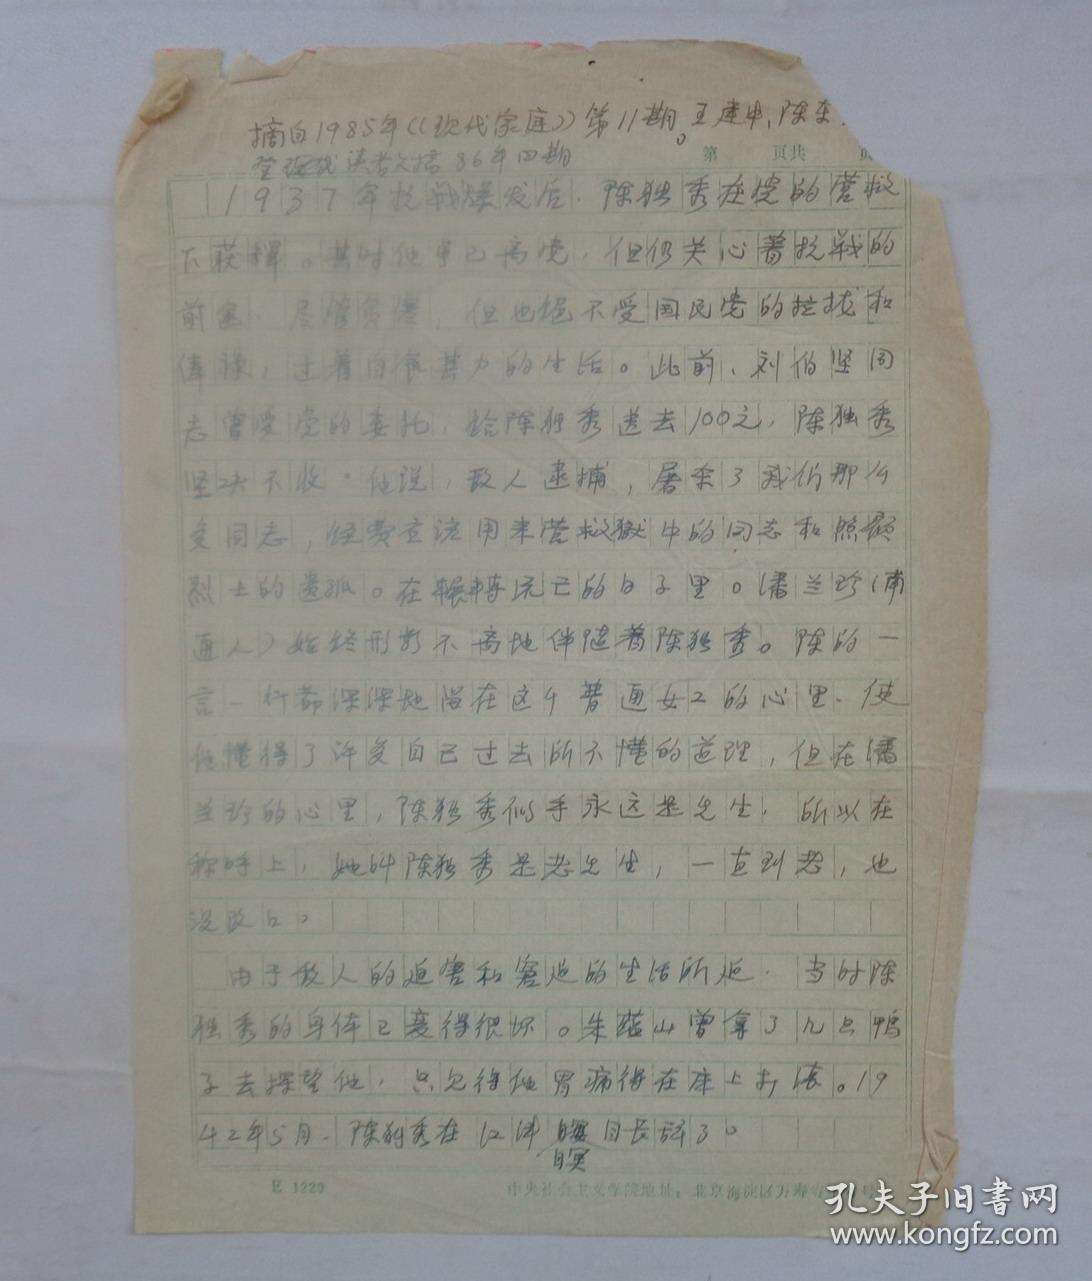 摘自1985年《现代家庭》第11期。王建申、陈东
登 读者文摘86年四期
第 页共 页
1937年抗战爆发后、陈独秀在党的营救
下获释。其时他早已离党，但仍关心着抗战的
前 。尽管 ，但也绝不受国民党的拉拢和
俸禄，过着自食其力的生活。此前、刘伯坚同
志曾受党的委托，给陈独秀送去100元，陈独秀
坚决不收。他说，敌人逮捕，屠杀了我们那么
多同志，经费应该用来营救狱中的同志和照顾
烈士的遗孤。在辗转流亡的日子里。潘兰珍（南
通人）始终形影不离地伴随着陈独秀。陈的一
言一行都深深地留在这个普通女工的心里、使
他懂得了许多自己过去所不懂的道理，但在潘
兰珍的心里，陈独秀似乎永远是先生，所以在
称呼上，她叫陈独秀是老先生，一直到老，也
没改口。
由于敌人的迫害和窘迫的生活所迫．当时陈
独秀的身体已变得很坏。朱蕴山曾拿了几只鸭
子去探望他，只见得他胃痛得在床上打滚。19
42年5月．陈独秀在江津 目长辞了。
瞑
E 1220
中央社会主义学院地址：北京海淀区万寿寺
孔夫子旧书网
www.kongfz.com